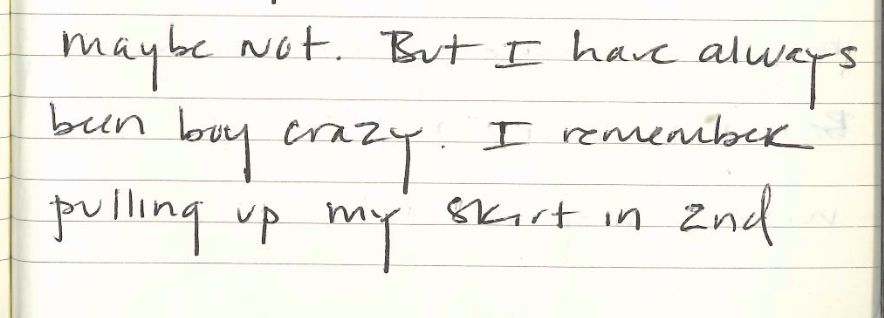 maybe not. But I have always
been boy crazy. I remember
pulling up my skirt in 2nd